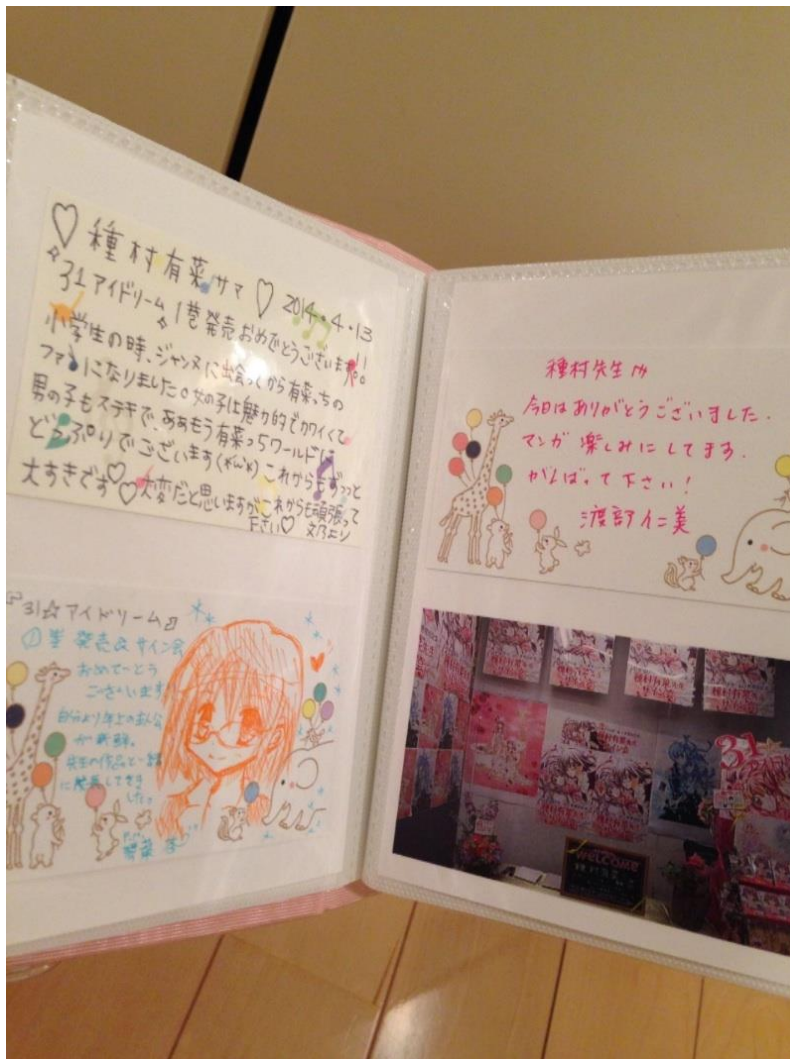 ♡種村有菜サマ♡ 2014.4.13
31アイドリーム1巻発売おめでとうございます!!
小学生の時、ジャンヌに出会ってから有菜っちの
ファンになりました。女の子は魅力的でカワイくて
男の子もステキで、ああもう有菜っちワールドに
どっぷりでございます(*´ω`*)これからもずっっと
大すきです♡♡大変だと思いますがこれからも頑張って
下さい♡
『31☆アイドリーム』
①巻 発売&サイン会
おめでとう
ございます
自分より年上の主人公
が新鮮。
先生の作品と一緒
に成長してきま
した。
種村先生
今日はありがとうございました.
マンガ楽しみにしてます.
がんばって下さい!
渡部仁美
種村有菜
サイン会
31
WELCOME